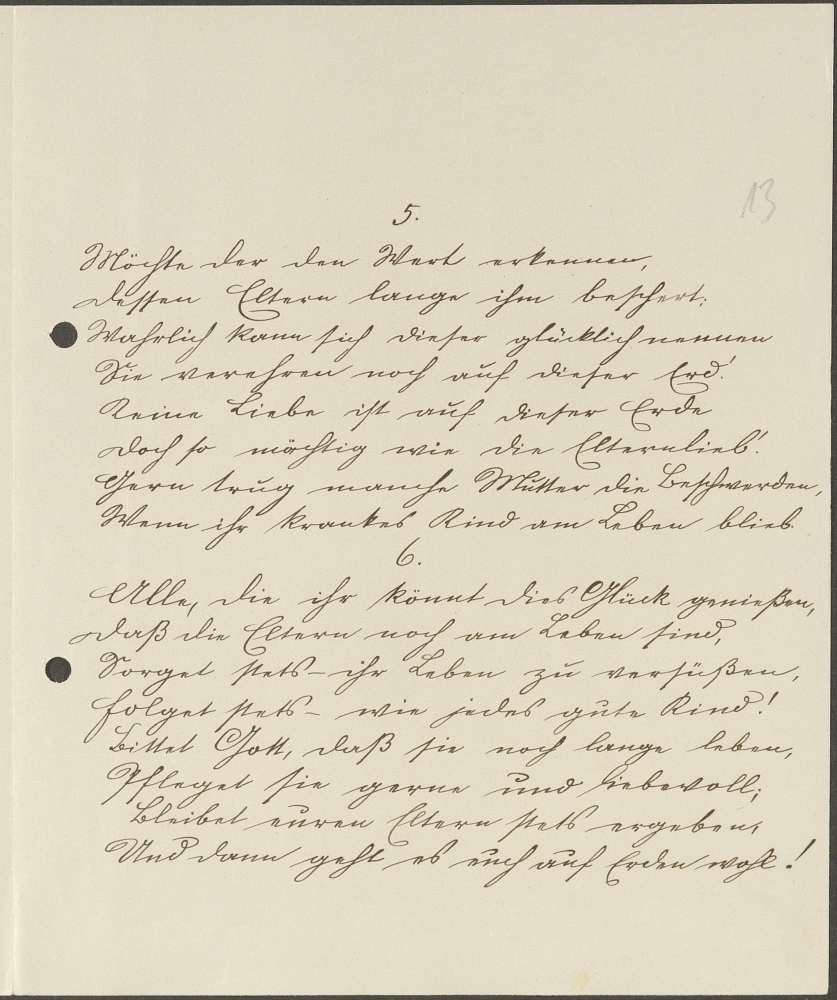 13
5.
Möchte der den Wert erkennen,
Dessen Eltern lange ihm beschert;
Wahrlich kann sich dieser glücklich nennen
Sie verehren noch auf dieser Erd'.
Keine Liebe ist auf dieser Erde
Doch so mächtig wie die Elternlieb'.
Gern trug manche Mutter die Beschwerden,
Wenn ihr krankes Kind am Leben blieb.
6.
Alle, die ihr könnt dies Glück genießen,
Daß die Eltern noch am Leben sind,
Sorget stets – ihr Leben zu versüßen,
Folget stets – wie jedes gute Kind!
Bittet Gott, daß sie noch lange leben,
Pfleget sie gerne und liebevoll;
Bleibet euren Eltern stets ergeben,
Und dann geht es euch auf Erden wohl!